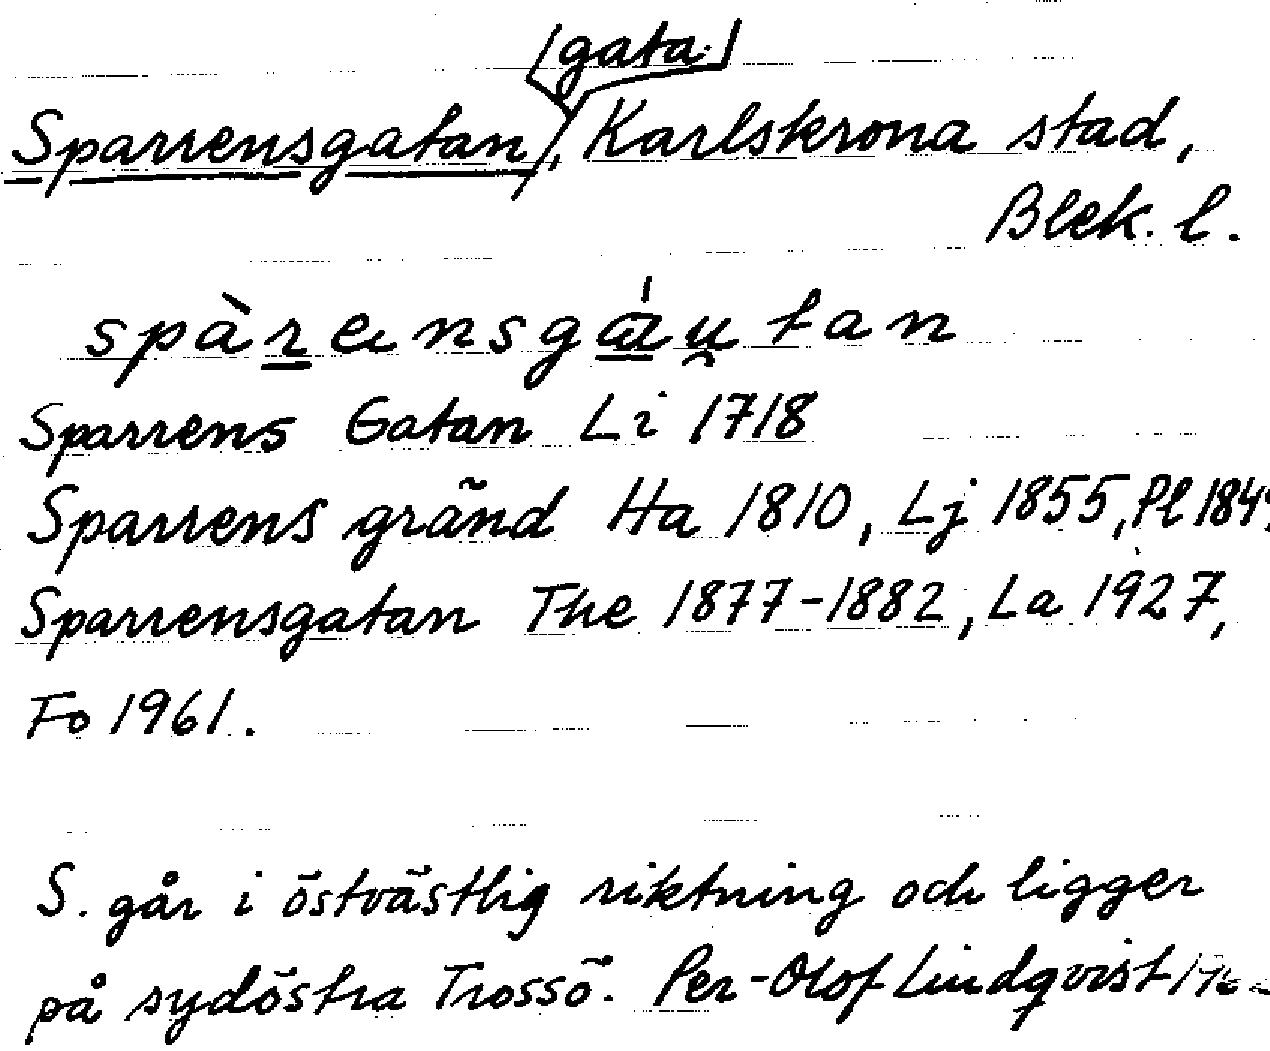 gata.
Sparrensgatan, Karlskrona stad,
Blek. l.
Sparrens Gatan Li 1718
Sparrens gränd Ha 1810, Lj 1855, Pl
Sparrensgatan The 1877-1882, La 1927,
Fo 1961.
S. går i östvästlig riktning och ligger
på sydöstra Trossö. Per-Olof Lindqvist